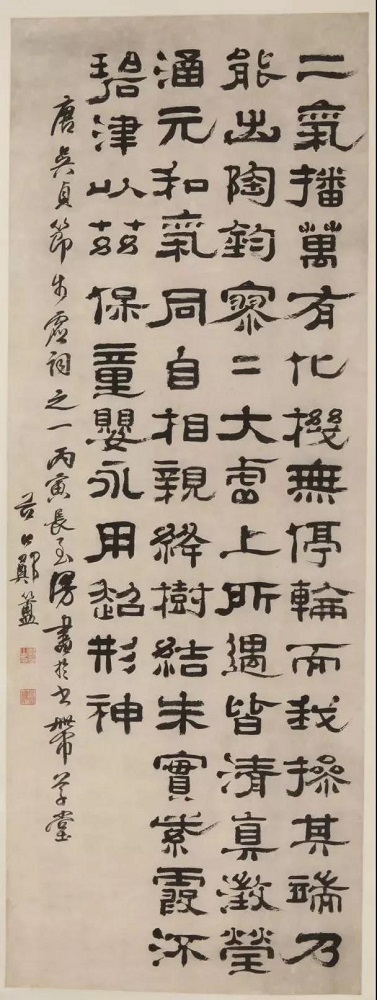 二氣播萬有化機無停輪而我操其端乃
能出陶鈞寥二大虛上所遇皆清真澂瑩
涵元和氣同自相親絳樹結朱實紫霞沠
碧津以茲保童嬰永用超形神
唐吳貞節步虛詞之一丙寅長至漫書於書帶草堂
谷口鄭簠